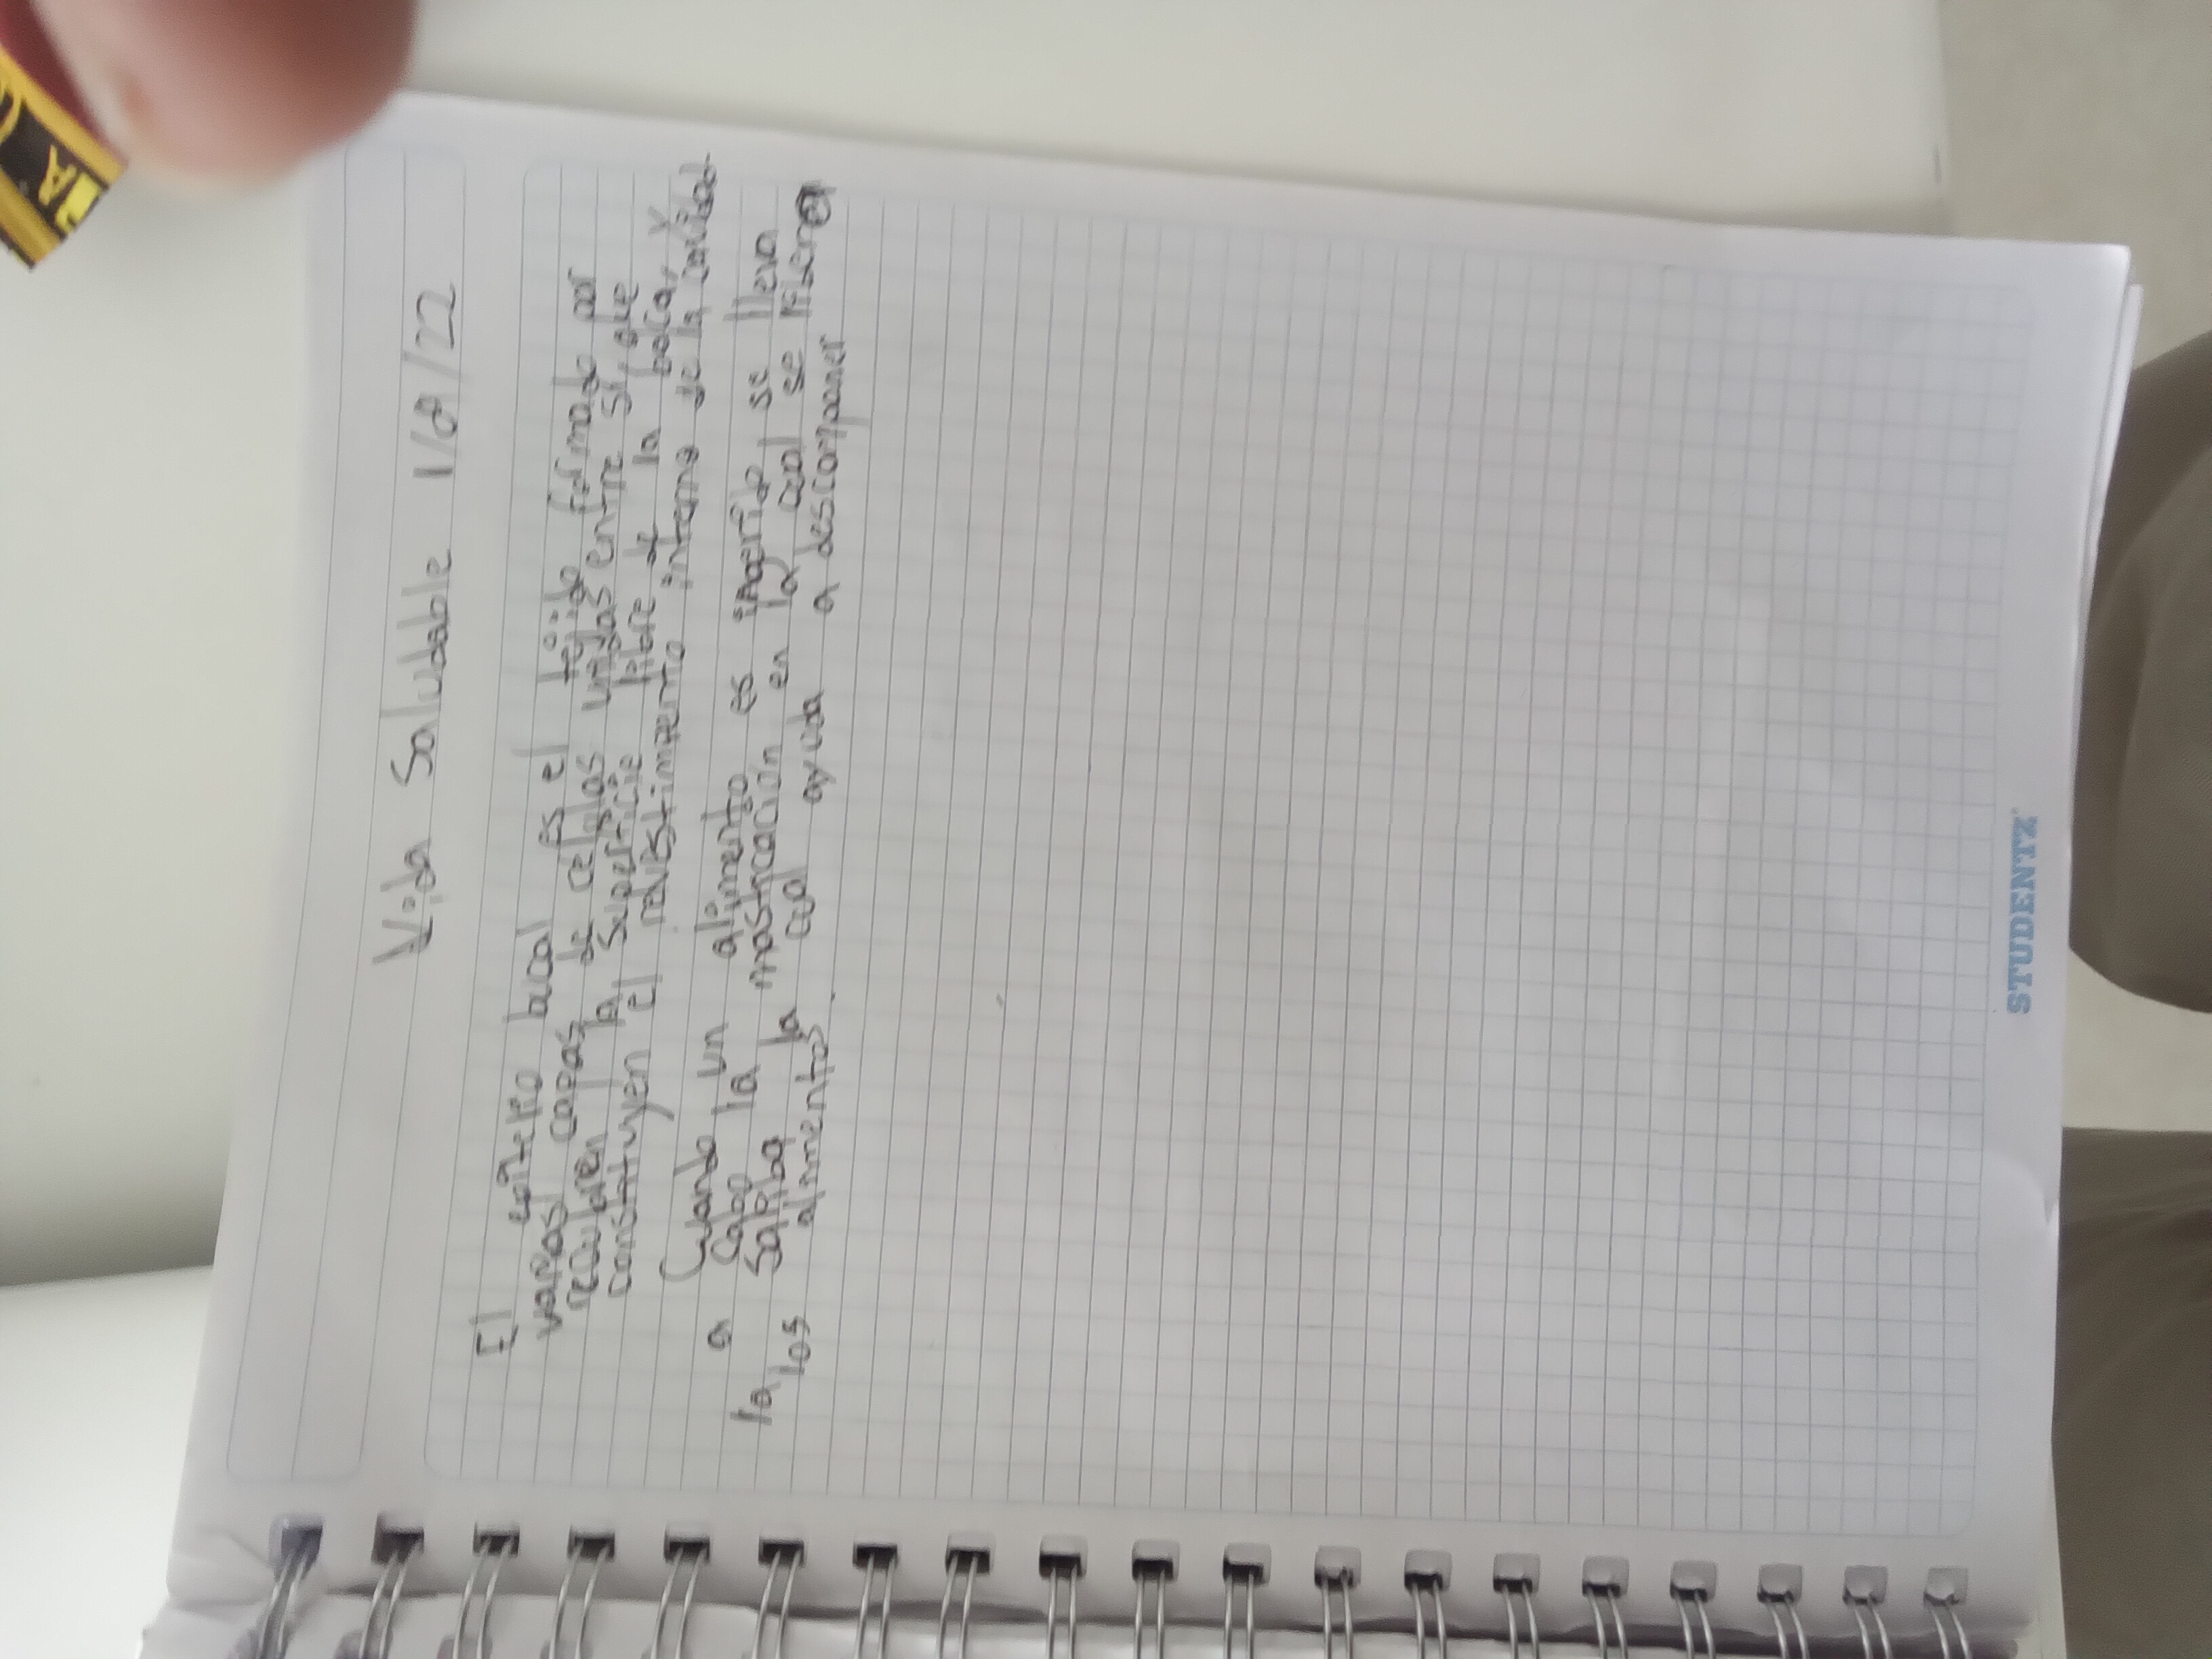 Vida Saludable 1/8/22
El epitelio bucal es el tejido formado por
varias capas de celulas unidas entre si, que
recubren la superficie libre de la boca, y
constituyen el revestimiento interno de la cavidad
Cuando un alimento es ingerido se lleva
a cabo la masticación en la cual se libera
la saliba la cual ayuda a descomponer
los alimentos.
STUDENTZ